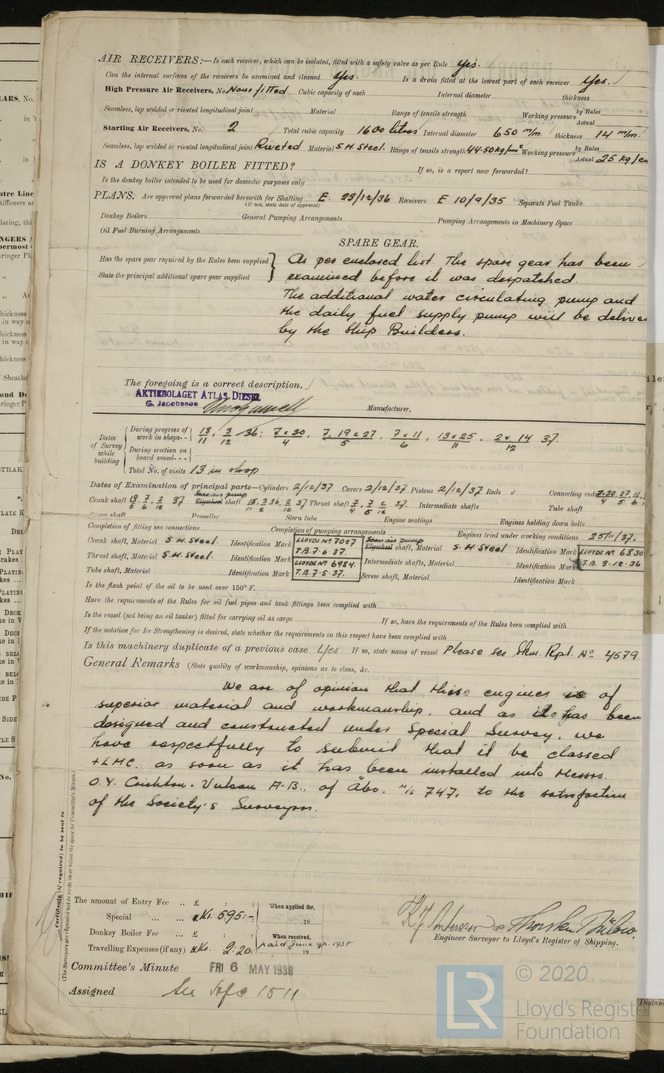 AIR RECEIVERS:—Is each receiver, which can be isolated, fitted with a safety valve as per Rule Yes.
Can the internal surfaces of the receivers be examined and cleaned Yes. Is a drain fitted at the lowest part of each receiver Yes.
High Pressure Air Receivers, No. None fitted Cubic capacity of each Internal diameter thickness
Seamless, lap welded or riveted longitudinal joint Material Range of tensile strength Working pressure by Rules Actual
Starting Air Receivers, No. 2 Total cubic capacity 1600 litres Internal diameter 650 m/m. thickness 14 m/m.
Seamless, lap welded or riveted longitudinal joint Riveted Material S.M. Steel. Range of tensile strength 44-50 kg/m² Working pressure by Rules Actual 25 kg/cm
IS A DONKEY BOILER FITTED? If so, is a report now forwarded?
Is the donkey boiler intended to be used for domestic purposes only
PLANS. Are approved plans forwarded herewith for Shafting E. 23/12/36 Receivers E 10/9/35 Separate Fuel Tanks
(If not, state date of approval)
Donkey Boilers General Pumping Arrangements Pumping Arrangements in Machinery Space
Oil Fuel Burning Arrangements
SPARE GEAR.
Has the spare gear required by the Rules been supplied As per enclosed list. The spare gear has been
State the principal additional spare gear supplied examined before it was despatched.
The additional water circulating pump and
the daily fuel supply pump will be delive
by the Ship Builders.
The foregoing is a correct description,
AKTIEBOLAGET ATLAS DIESEL
G. Jacobsson Manufacturer.
Dates of Survey while building
During progress of work in shops-- 13/11, 3/12 /36; 7 & 30/4, 7, 19 & 27/5, 7 & 11/6, 13 & 25/11, 2 & 14/12 37.
During erection on board vessel---
Total No. of visits 13 in shop
Dates of Examination of principal parts—Cylinders 2/12/37 Covers 2/12/37 Pistons 2/12/37 Rods Connecting rods
Crank shaft 37 Scav. air pump shaft 37 Thrust shaft 37. Intermediate shafts Tube shaft
Propeller Stern tube Engine seatings Engines holding down bolts
Completion of fitting sea connections Completion of pumping arrangements Engines tried under working conditions 25/11/37.
Crank shaft, Material S.M. Steel Identification Mark LLOYDS No 7007 T.B. 7.6.37. Scav. air pump shaft, Material S.M. Steel Identification Mark LLOYDS No 6830 T.B. 3.12.36
Thrust shaft, Material S.M. Steel. Identification Mark LLOYDS No 6984. T.B. 7.5.37. Intermediate shafts, Material Identification Marks
Tube shaft, Material Identification Mark Screw shaft, Material Identification Mark
Is the flash point of the oil to be used over 150° F.
Have the requirements of the Rules for oil fuel pipes and tank fittings been complied with
Is the vessel (not being an oil tanker) fitted for carrying oil as cargo If so, have the requirements of the Rules been complied with
If the notation for Ice Strengthening is desired, state whether the requirements in this respect have been complied with
Is this machinery duplicate of a previous case Yes If so, state name of vessel Please see Skm. Rpt. No 4579
General Remarks (State quality of workmanship, opinions as to class, &c.
We are of opinion that these engines is of
superior material and workmanship, and as it has been
designed and constructed under Special Survey, we
have respectfully to submit that it be classed
+LMC. as soon as it has been installed into Messrs.
O.Y. Crichton-Vulcan A-B., of Åbo, No 747, to the satisfaction
of the Society's Surveyors.
Certificate (if required) to be sent to
The amount of Entry Fee .. £ : : When applied for,
Special ... ... Kr. 595:- 19
Donkey Boiler Fee ... £ : : When received,
Travelling Expenses (if any) Kr. 2.20. paid 1938 19
Engineer Surveyor to Lloyd's Register of Shipping.
Committee's Minute FRI 6 MAY 1938
Assigned See 1511
© 2020
LR
Lloyd's Register
Foundation